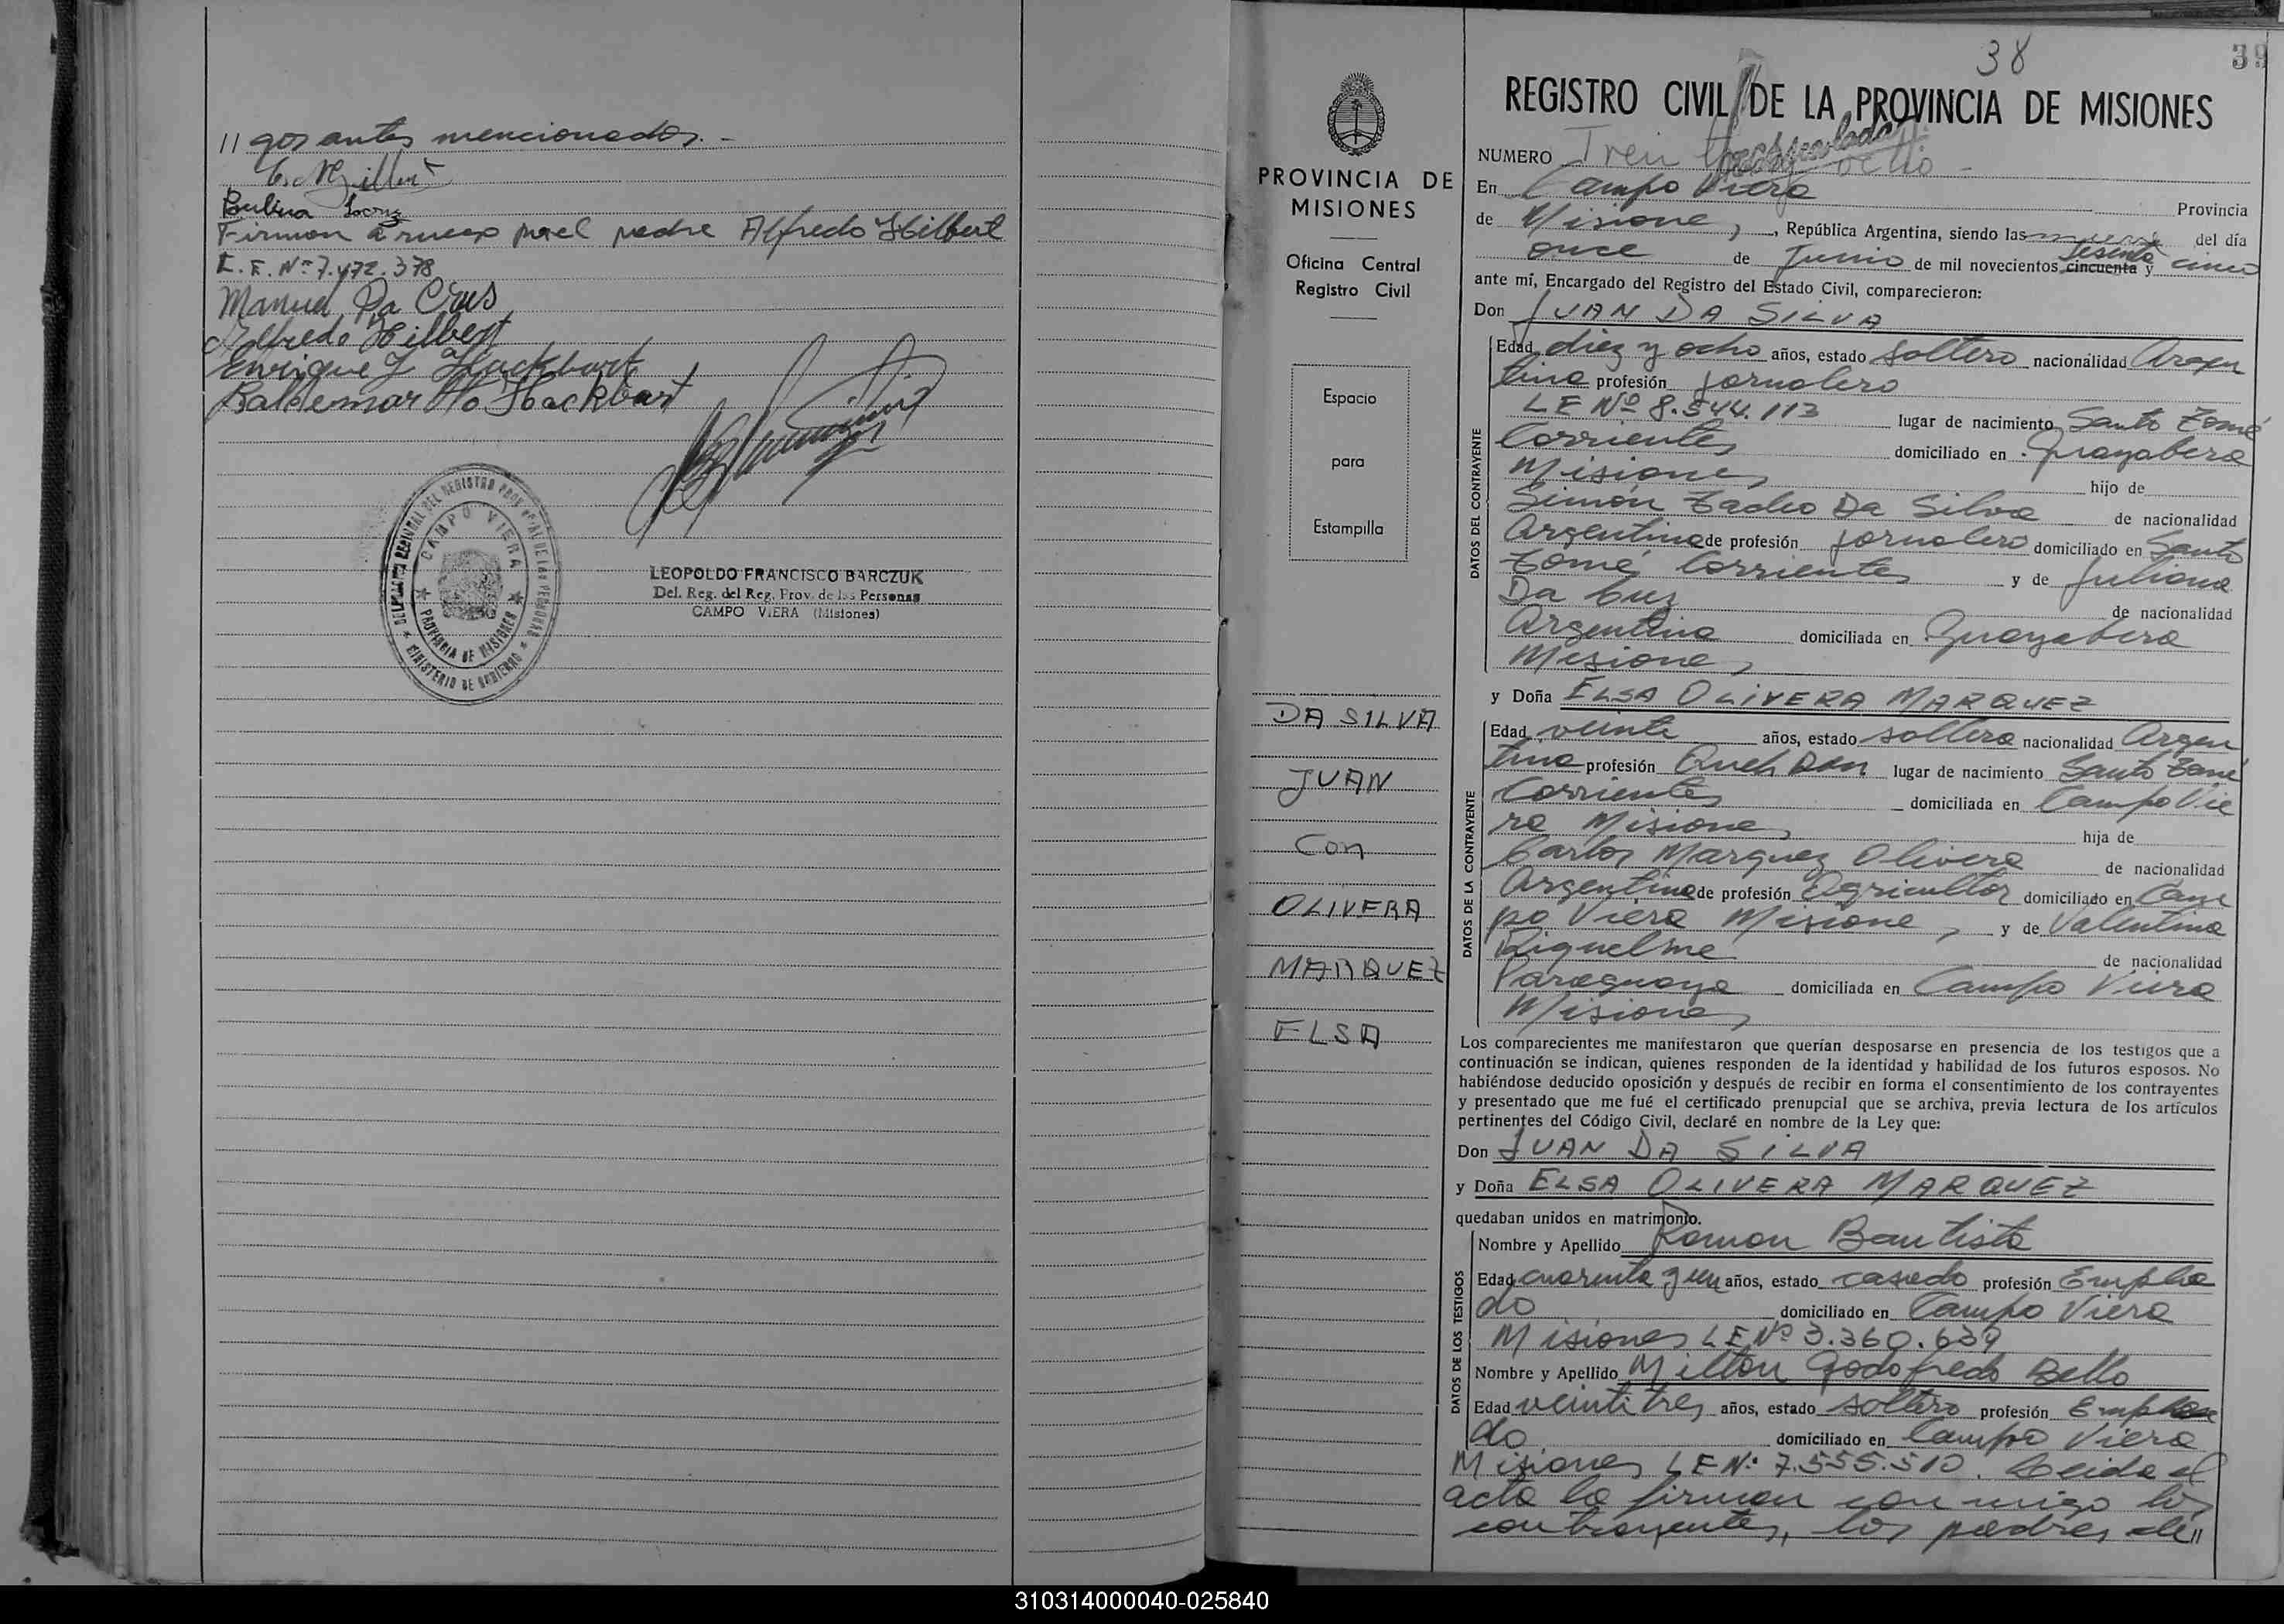 // gos antes mencionados.-
Firman a ruego por el padre Alfredo Hilbert
L.E. Nº 7.472.378
Manuel Da Crus
Alfredo Hilbert
Enrique J Hackbart
Baldemar Otto Hackbart
DELEGACION REGIONAL DEL REGISTRO PROVINCIAL DE LAS PERSONAS
CAMPO VIERA
PROVINCIA DE MISIONES
MINISTERIO DE GOBIERNO
LEOPOLDO FRANCISCO BARCZUK
Del. Reg. del Reg. Prov. de las Personas
CAMPO VIERA (Misiones)
PROVINCIA DE
MISIONES
Oficina Central
Registro Civil
Espacio
para
Estampilla
DA SILVA
JUAN
Con
OLIVERA
MARQUEZ
ELSA
38
39
REGISTRO CIVIL DE LA PROVINCIA DE MISIONES
NUMERO Trein ocho
En Campo Viera Provincia
de Misiones, República Argentina, siendo las nueve del día
once de Junio de mil novecientos cincuenta y sesenta cinco
ante mí, Encargado del Registro del Estado Civil, comparecieron:
Don JUAN DA SILVA
DATOS DEL CONTRAYENTE
Edad diez y ocho años, estado soltero nacionalidad Argen
tina profesión jornalero
LE Nº 8.544.113 lugar de nacimiento Santo Tomé
Corrientes domiciliado en Guayabera
Misiones hijo de
Simón Tadeo Da Silva de nacionalidad
Argentina de profesión jornalero domiciliado en Santo
Tomé Corrientes y de Juliana
Da Cruz de nacionalidad
Argentina domiciliada en Guayabera
Misiones
y Doña ELSA OLIVERA MARQUEZ
DATOS DE LA CONTRAYENTE
Edad veinte años, estado soltera nacionalidad Argen
tina profesión Queh Dom. lugar de nacimiento Santo Tomé
Corrientes domiciliada en Campo Vie
ra Misiones hija de
Carlos Marquez Olivera de nacionalidad
Argentina de profesión Agricultor domiciliado en Cam
po Viera Misiones y de Valentina
Riquelme de nacionalidad
Paraguaya domiciliada en Campo Viera
Misiones
Los comparecientes me manifestaron que querían desposarse en presencia de los testigos que a
continuación se indican, quienes responden de la identidad y habilidad de los futuros esposos. No
habiéndose deducido oposición y después de recibir en forma el consentimiento de los contrayentes
y presentado que me fué el certificado prenupcial que se archiva, previa lectura de los artículos
pertinentes del Código Civil, declaré en nombre de la Ley que:
Don JUAN DA SILVA
y Doña ELSA OLIVERA MARQUEZ
quedaban unidos en matrimonio.
DATOS DE LOS TESTIGOS
Nombre y Apellido Ramon Bautista
Edad cuarenta y un años, estado casado profesión Emplea
do domiciliado en Campo Viera
Misiones LE Nº 3.360.639
Nombre y Apellido Milton Godofredo Bello
Edad veintitres años, estado soltero profesión Emplea
do domiciliado en Campo Viera
Misiones LE Nº 7.555.510. Leida el
acta la firman con migo los
contrayentes, los padres de//
310314000040-025840